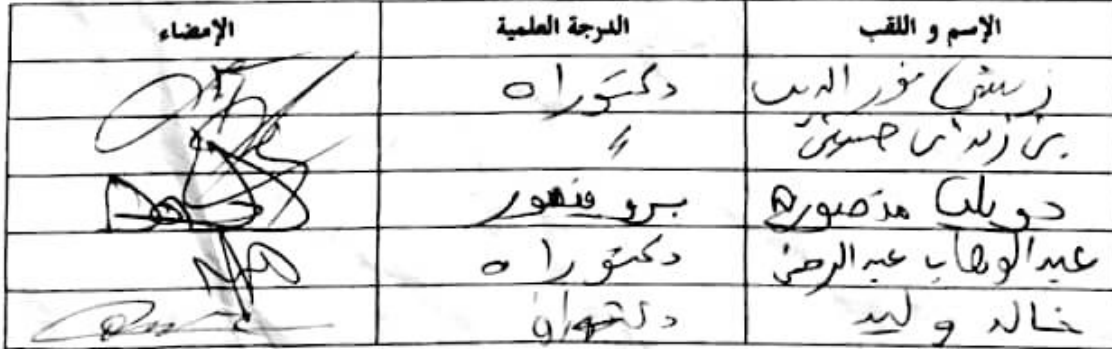 الإسم و اللقب الدرجة العلمية الإمضاء
نور الدين دكتوراه
بن زيدان "
منصورة بروفسور
عبد الوهاب عبد الرحمن دكتوراه
خالد وليد دكتوراه